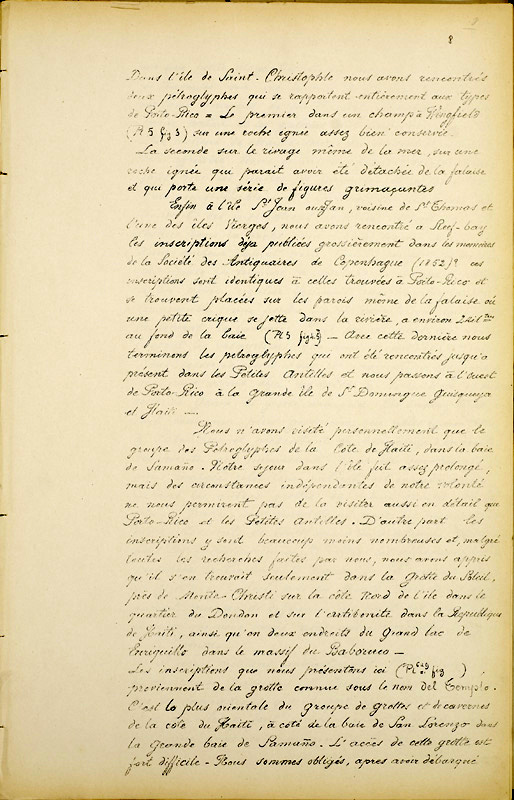 8
Dans l'île de Saint-Christophle nous avons rencontrés
deux pétroglyphes qui se rapportent entièrement aux types
de Porto-Rico = Le premier dans un champ à Wingfield
(Pl 5 fig 3) sur une roche ignée assez bien conservée
La seconde sur le rivage même de la mer, sur une
roche ignée qui parait avoir été détachée de la falaise
et qui porte une série de figures grimaçantes
Enfin à l'île St Jean ou San Jan, voisine de St Thomas et
l'une des îles Vierges, nous avons rencontré a Reef-bay
les inscriptions déja publiées grossièrement dans les memoires
de la Société des Antiquaires de Copenhague (1852)? ces
inscriptions sont identiques à celles trouvées à Porto-Rico et
se trouvent placées sur les parois même de la falaise où
une petite crique se jette dans la rivière, a environ
au fond de la baie (Pl 5 fig 4.5) — Avec cette dernière nous
terminons les petroglyphes qui ont été rencontrés jusqu'a
présent dans les Petites Antilles et nous passons à l'ouest
de Porto-Rico à la Grande île de St Domingue Quisqueya
et Haïti —
Nous n'avons visité personnellement que le
groupe des Pétroglyphes de la Côte de Haïti, dans la baie
de Samaño. Nôtre sejour dans l'île fut assez prolongé,
mais des circonstances indépendantes de notre volonté
ne nous permirent pas de la visiter aussi en détail que
Porto-Rico et les Petites Antilles. D'autre part les
inscriptions y sont beaucoup moins nombreuses et, malgré
toutes les recherches faites par nous, nous avons appris
qu'il s'en trouvait seulement dans la grotte du
près de Monte-Christi sur la côte Nord de l'île dans le
quartier du Dondon et sur l'artibonite dans la République
de Haïti, ainsi qu'en deux endroits du Grand lac de
Enriquillo dans le massif du Baboruco —
Les inscriptions que nous présentons ici (Pl fig )
proviennent de la grotte connue sous le nom del Templo.
C'est la plus orientale du groupe de grottes et de cavernes
de la côte du Haïti, à côté de la baie de San Lorenzo dans
la Grande baie de Samaño. L'accès de cette grotte est
fort difficile - Nous sommes obligés, apres avoir débarqué